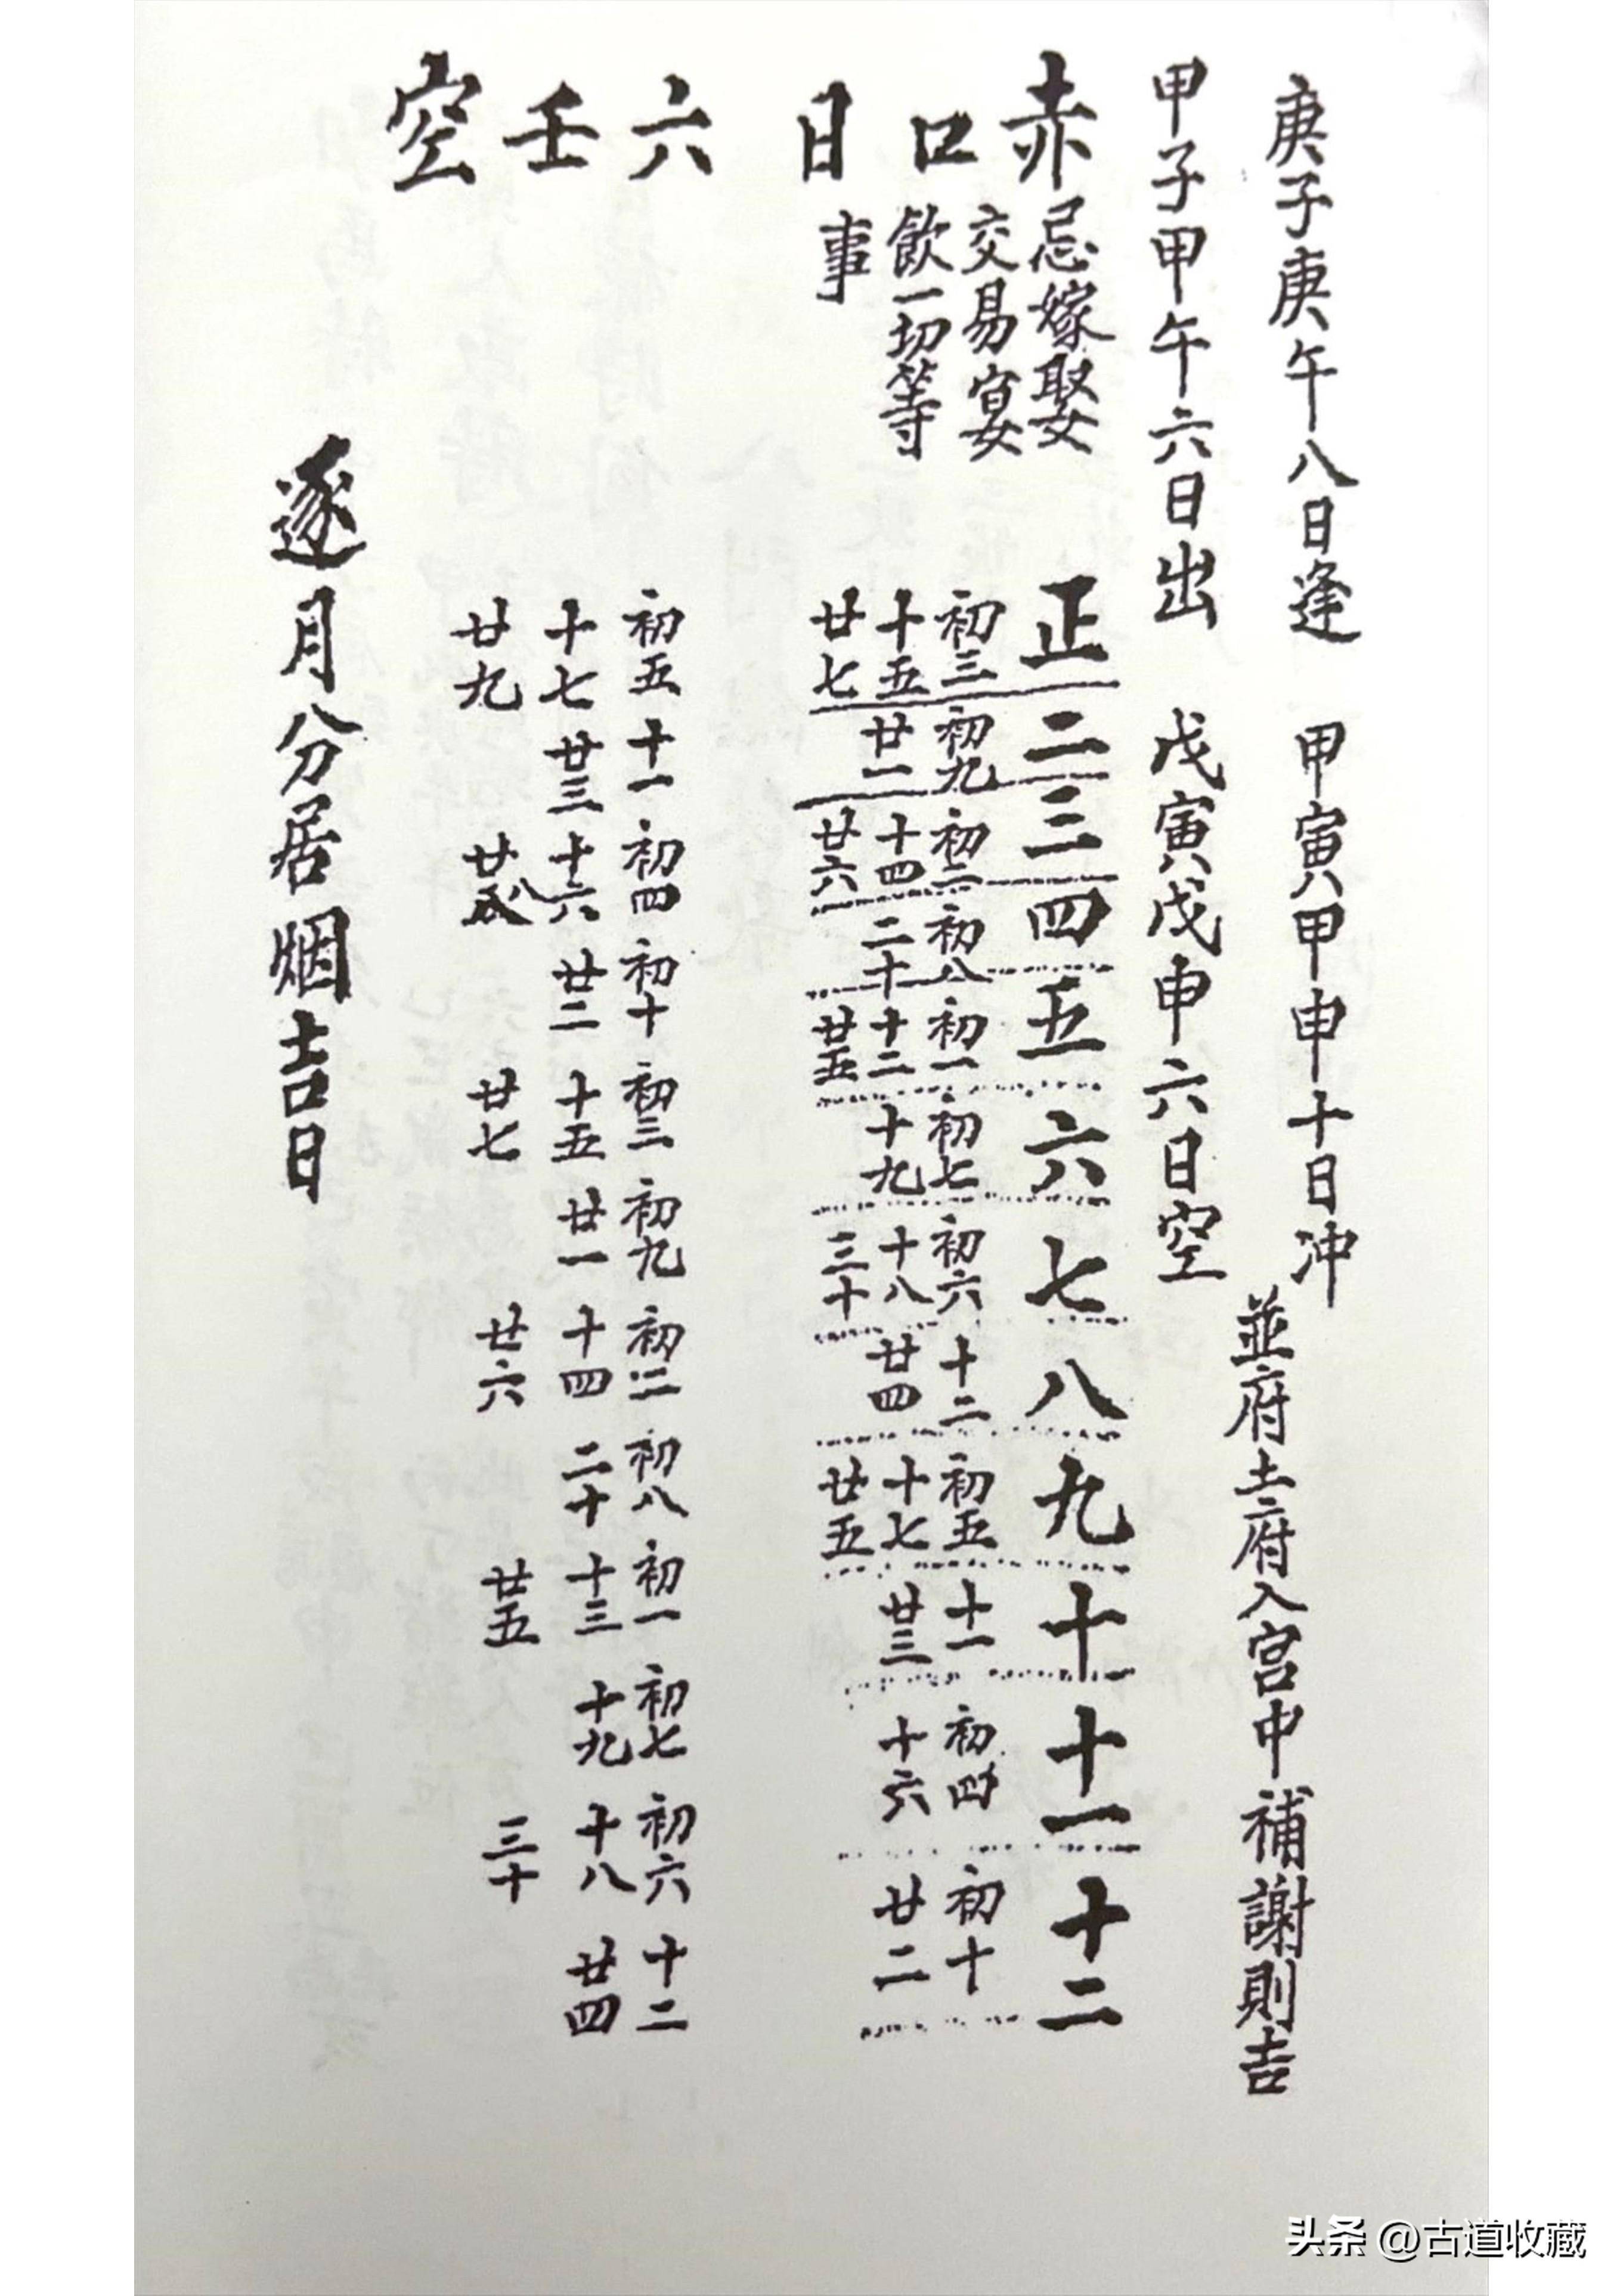 庚子庚午八日逢 甲寅甲申十日冲
甲子甲午六日出 戊寅戊申六日空
並府土府入宮中補謝則吉
赤口日
忌嫁娶
交易宴
飲一切等
事
正 二 三 四 五 六 七 八 九 十 十一 十二
初三 初九 初二 初八 初一 初七 初六 十二 初五 十一 初四 初十
十五 廿一 十四 二十 十二 十九 十八 廿四 十七 廿三 十六 廿二
廿七 廿六 廿五 三十 廿五
六壬空
初五 十一 初四 初十 初三 初九 初二 初八 初一 初七 初六 十二
十七 廿三 十六 廿二 十五 廿一 十四 二十 十三 十九 十八 廿四
廿九 廿八 廿七 廿六 廿五 三十
逐月分居烟吉日
头条 @古道收藏